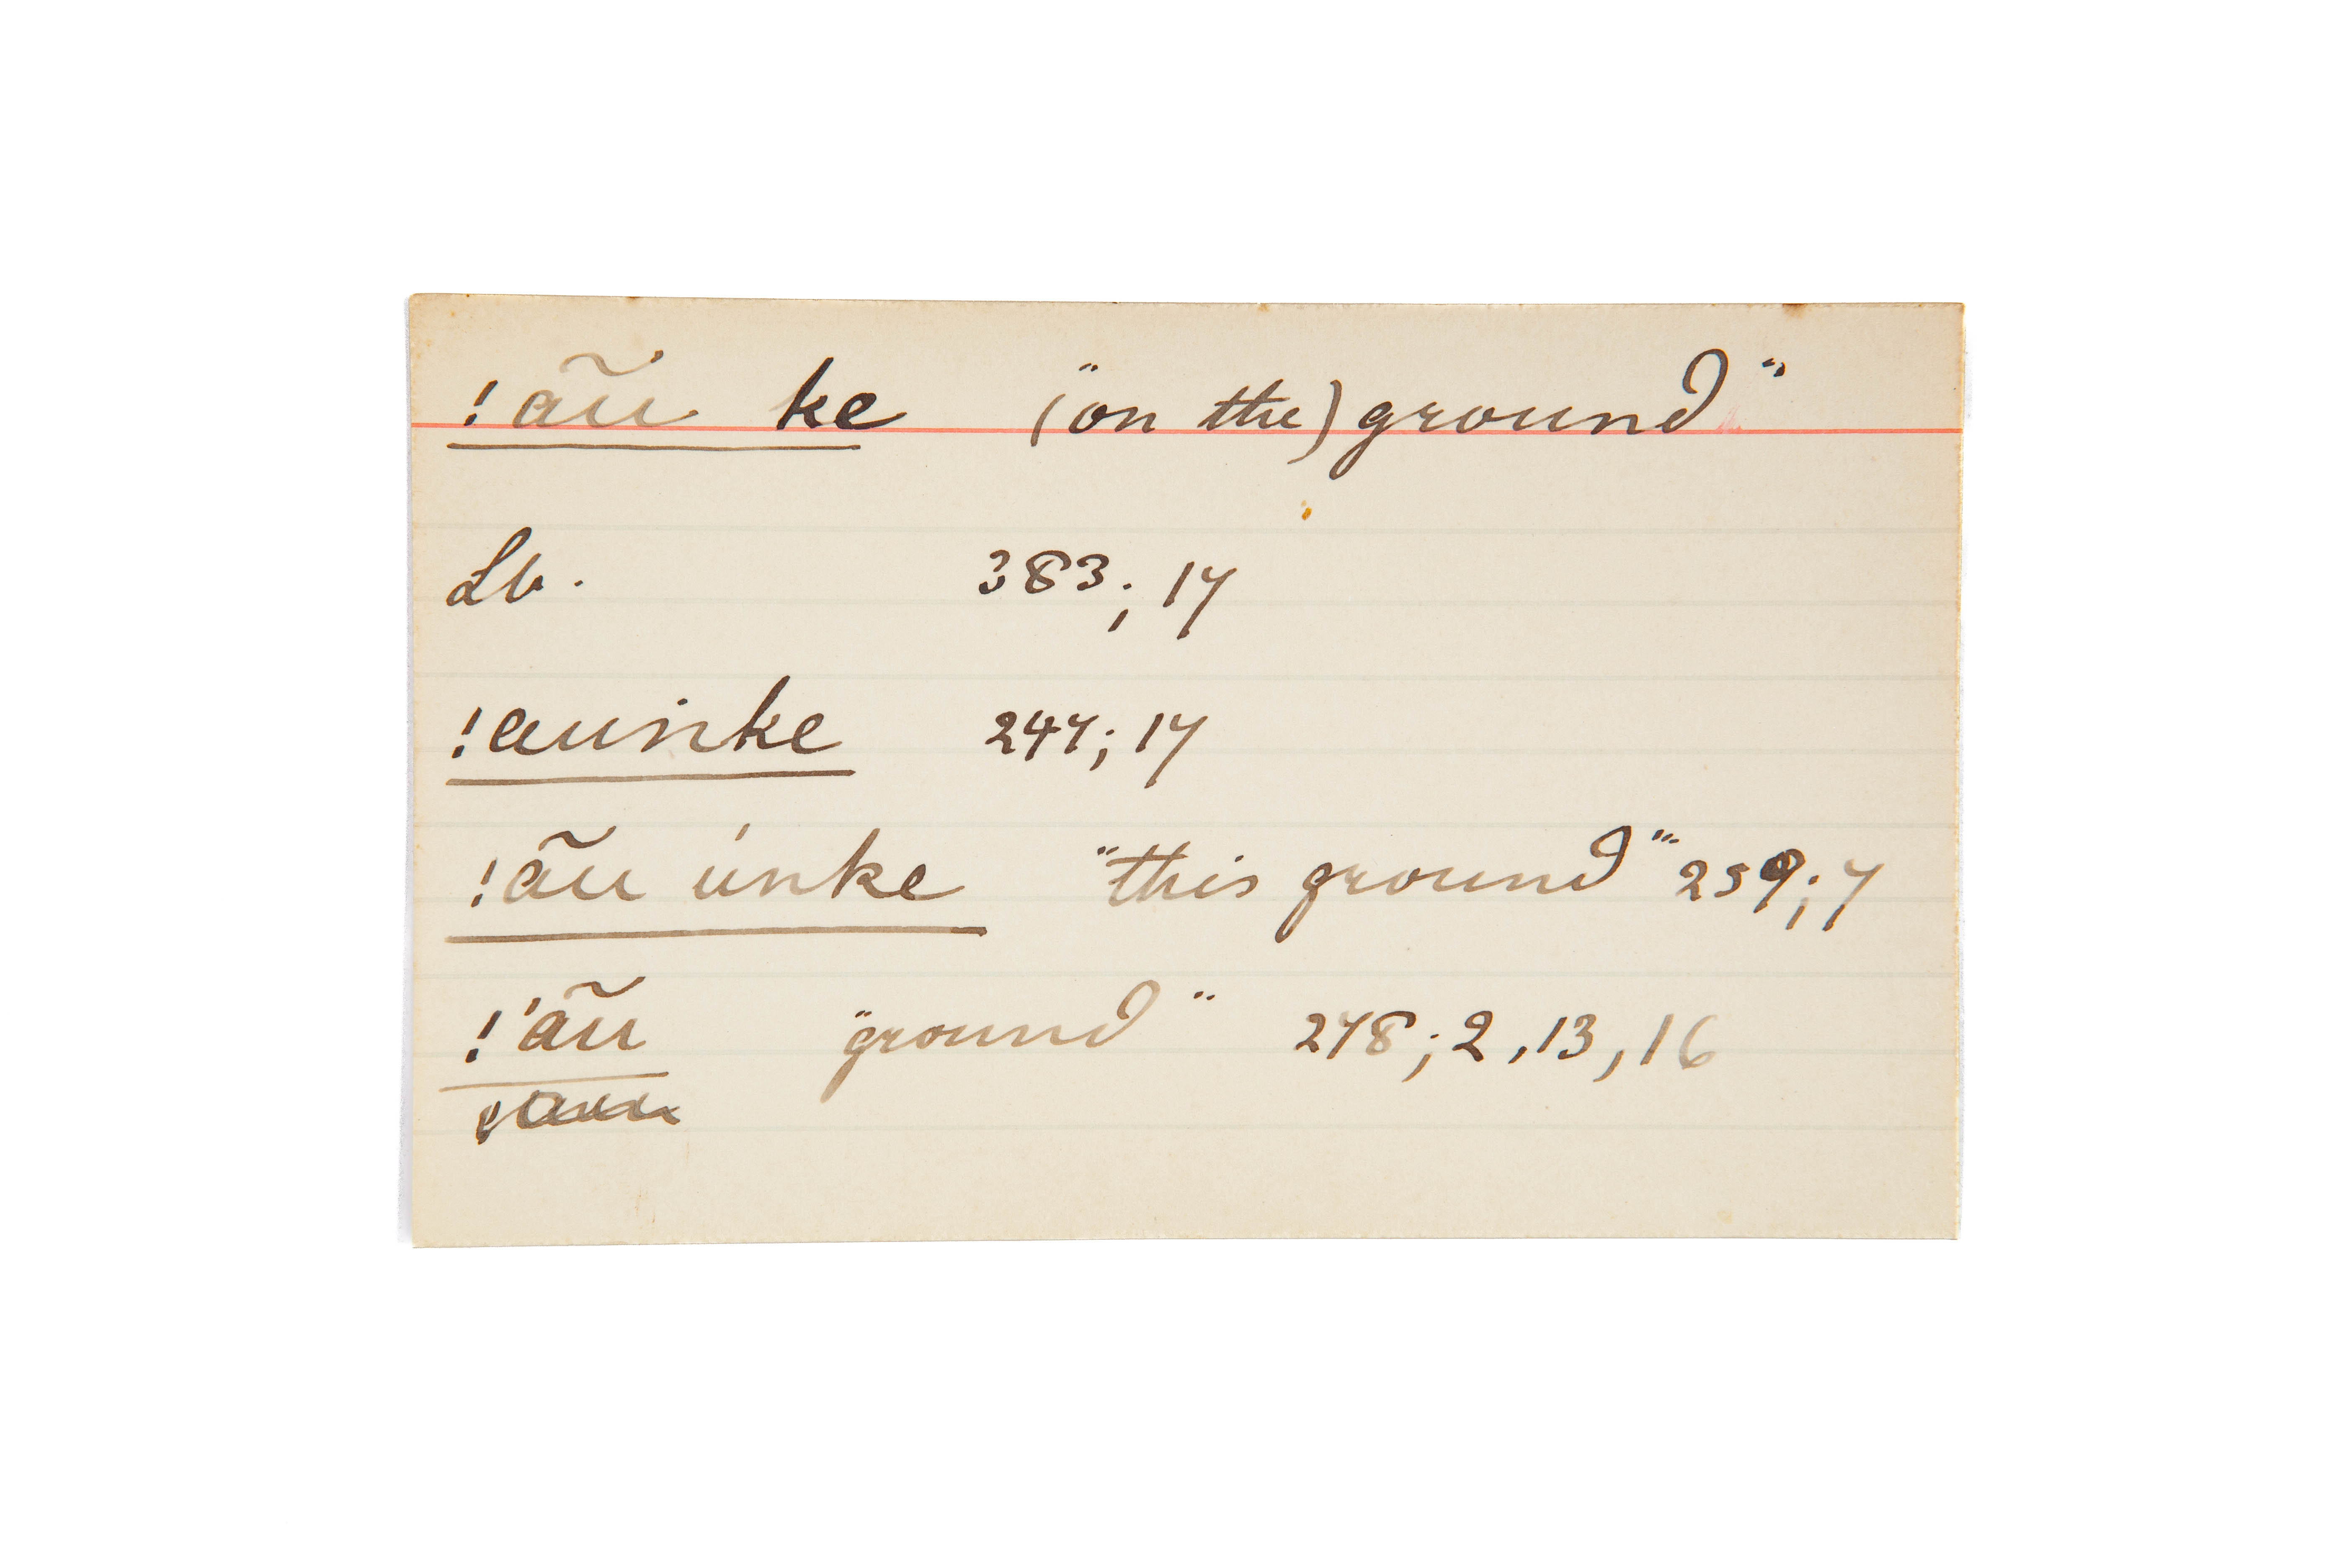 !ãu̇ ke ("on the) ground"
Lb. 383; 17
!auṅke 247; 17
!ãu únke "this ground" 259; 7
!'ãu "ground" 278; 2, 13, 16